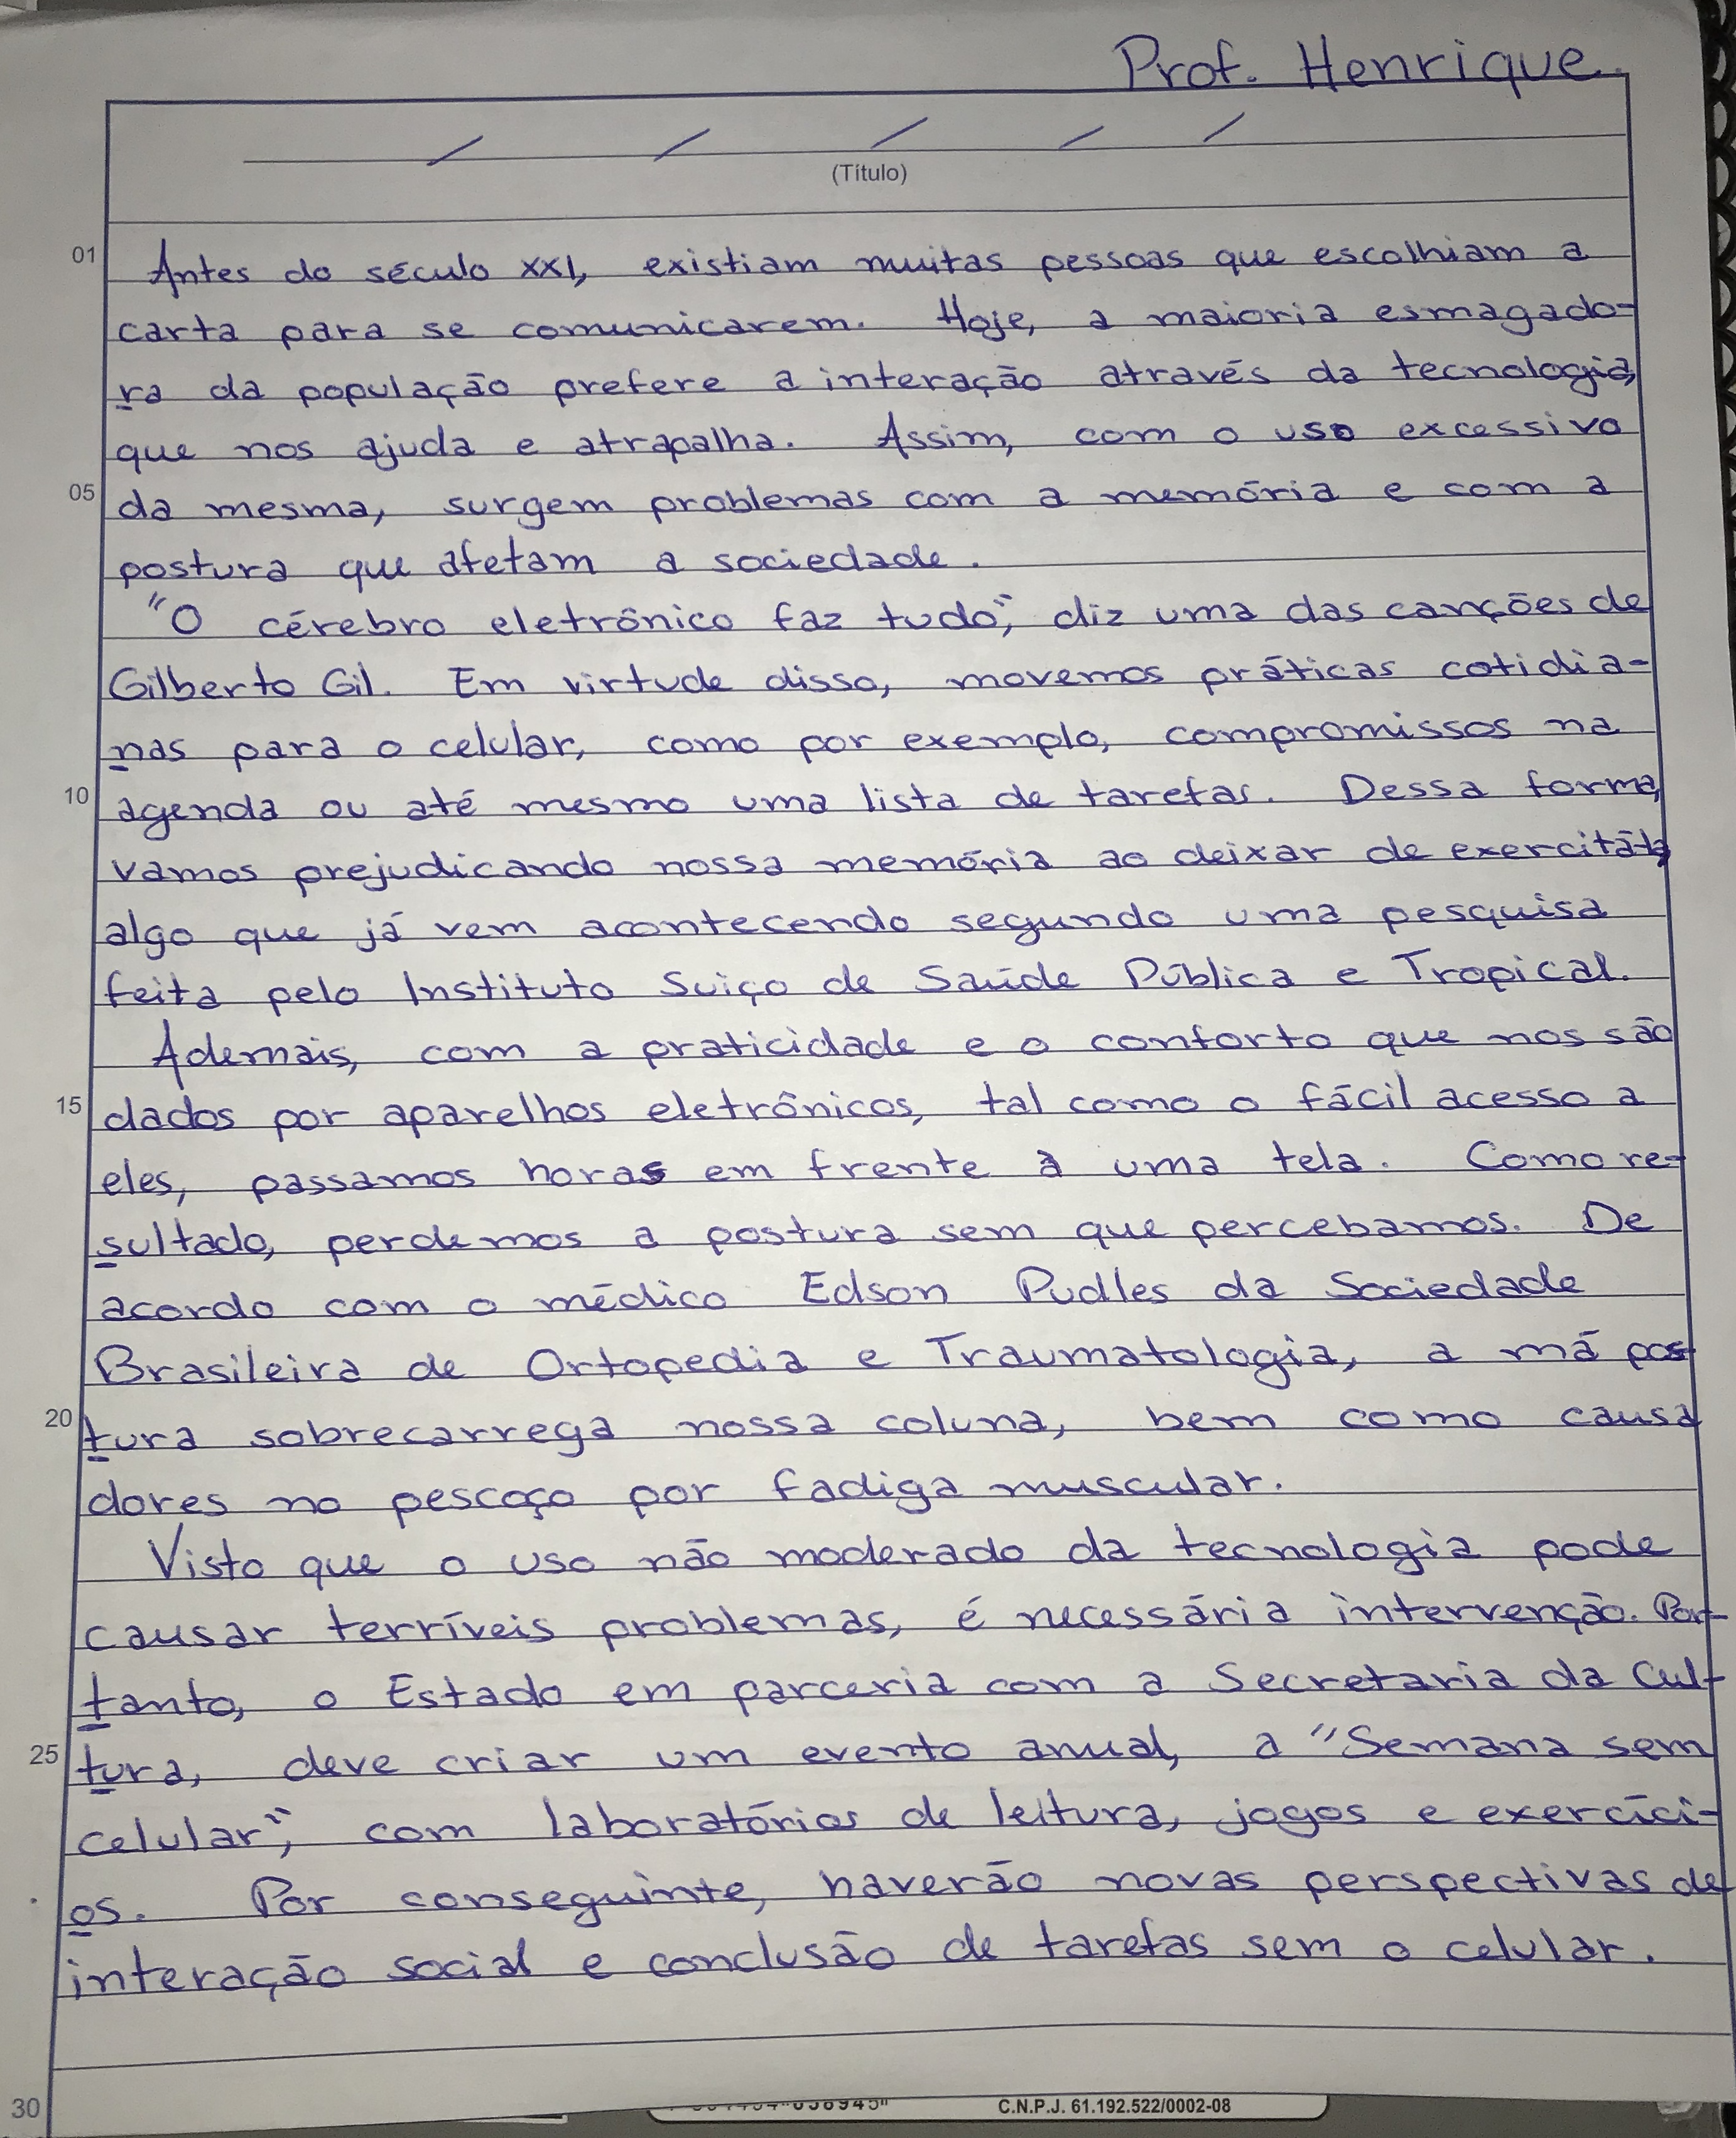 Prof. Henrique
(Título)
01 Antes do século XXI, existiam muitas pessoas que escolhiam a
carta para se comunicarem. Hoje, a maioria esmagado-
ra da população prefere a interação através da tecnologia,
que nos ajuda e atrapalha. Assim, com o uso excessivo
05 da mesma, surgem problemas com a memória e com a
postura que afetam a sociedade.
"O cérebro eletrônico faz tudo", diz uma das canções de
Gilberto Gil. Em virtude disso, movemos práticas cotidia-
nas para o celular, como por exemplo, compromissos na
10 agenda ou até mesmo uma lista de tarefas. Dessa forma,
vamos prejudicando nossa memória ao deixar de exercitá-la,
algo que já vem acontecendo segundo uma pesquisa
feita pelo Instituto Suiço de Saúde Pública e Tropical.
Ademais, com a praticidade e o conforto que nos são
15 dados por aparelhos eletrônicos, tal como o fácil acesso a
eles, passamos horas em frente à uma tela. Como re-
sultado, perdemos a postura sem que percebamos. De
acordo com o médico Edson Pudles da Sociedade
Brasileira de Ortopedia e Traumatologia, a má pos-
20 tura sobrecarrega nossa coluna, bem como causa
dores no pescoço por fadiga muscular.
Visto que o uso não moderado da tecnologia pode
causar terríveis problemas, é necessária intervenção. Por-
tanto, o Estado em parceria com a Secretaria da Cul-
25 tura, deve criar um evento anual, a "Semana sem
celular", com laboratórios de leitura, jogos e exercíci-
os. Por conseguinte, haverão novas perspectivas de
interação social e conclusão de tarefas sem o celular.
30
C.N.P.J. 61.192.522/0002-08